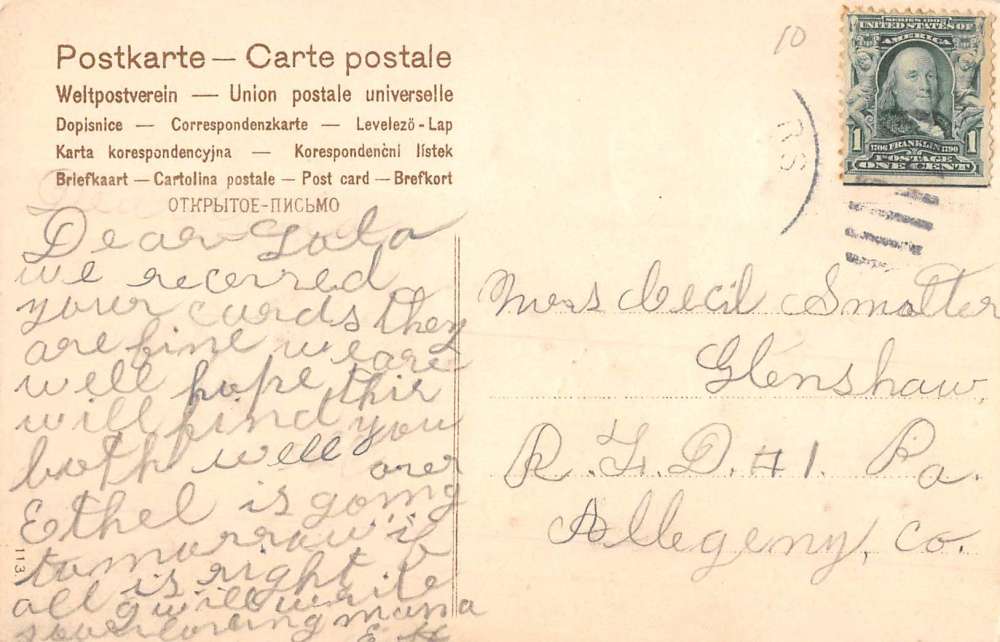 Postkarte — Carte postale
Weltpostverein — Union postale universelle
Dopisnice — Correspondenzkarte — Levelező-Lap
Karta korespondencyjna — Korespondenční lístek
Briefkaart — Cartolina postale — Post card — Brefkort
ОТКРЫТОЕ-ПИСЬМО
10
RS
SERIES 1902
UNITED STATES OF
AMERICA
1 1706 FRANKLIN 1790 1
POSTAGE
ONE CENT
Dear Lola
we recorred
your cards they
are fine we are
well hope this
will find you
both well
over
Ethel is going
tomorrow if
all is right
I will write
soon loving mama
E H
113
Mrs Cecil Smalter
Glenshaw,
R.F.D. #1. Pa.
Allegeny, Co.